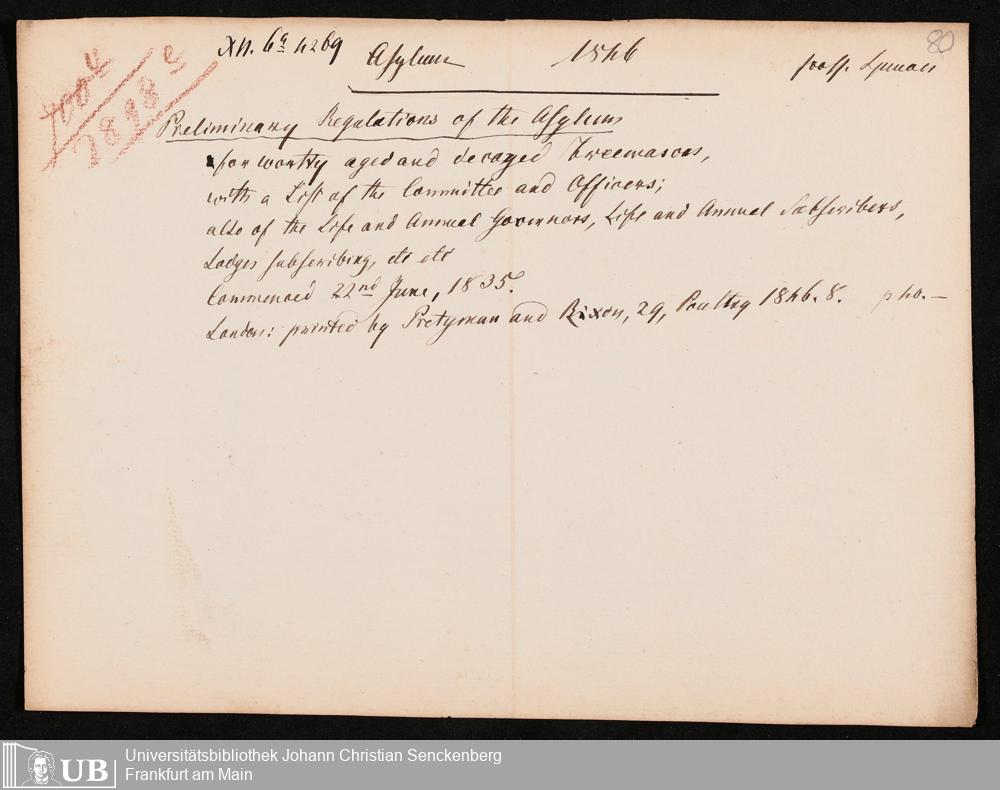 80
XII. 6ª 4269 Asylum 1846
Preliminary Regulations of the Asylum
for worthy aged and decayed Freemasons,
with a List of the Committee and Officers;
also of the Life and Annual Governors, Life and Annual Subscribers,
Lodges subscribing, etc etc
Commenced 22nd June, 1835.
London: printed by Pretyman and Rixon, 29, Poultry 1846. 8. p 40.—
UB
Universitätsbibliothek Johann Christian Senckenberg
Frankfurt am Main